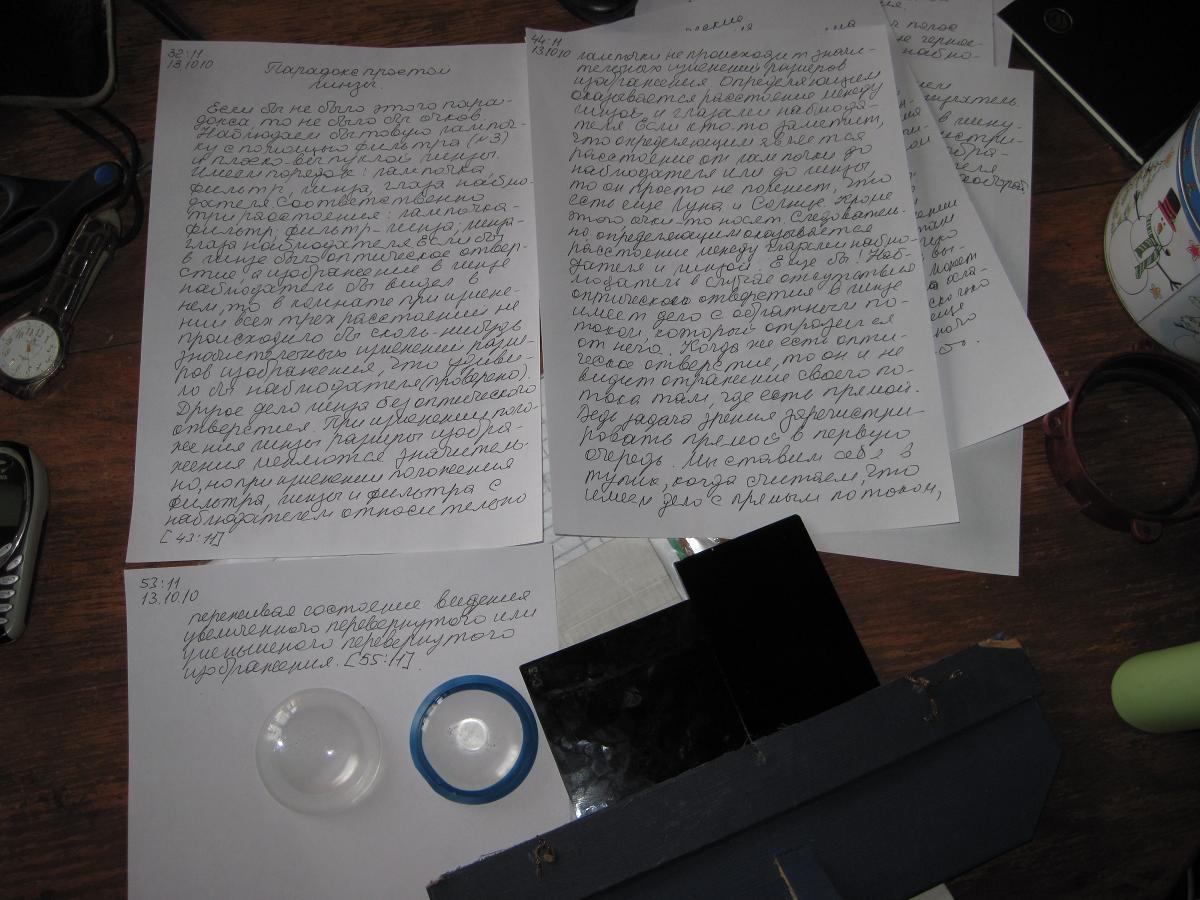 32:11
13.10.10
Парадокс простой
линзы.
Если бы не было этого пара-
докса то не было бы очков.
Наблюдаем бытовую лампоч-
ку с помощью фильтра (к3)
и плоско-выпуклой линзы.
Имеем порядок: лампочка,
фильтр, линза, глаза наблю-
дателя соответственно
три расстояния: лампочка-
фильтр; фильтр-линза; линза-
глаза наблюдателя. Если бы
в линзе было оптическое отвер-
стие, а изображение в линзе
наблюдатель бы видел в
нем, то в комнате при измене-
нии всех трех расстояний не
происходило бы сколь-нибудь
значительных изменений разме-
ров изображения, что удиви-
ло бы наблюдателя (проверено).
Другое дело линза без оптического
отверстия. При изменении поло-
жения линзы размеры изобра-
жения меняются значитель-
но, но при изменении положения
фильтра, линзы и фильтра с
наблюдателем относительно
[43:11]
44:11
13.10.10
лампочки не происходит значи-
тельных изменений размеров
изображения. Определяющим
оказывается расстояние между
линзой и глазами наблюда-
теля. Если кто-то заметит,
что определяющим является
расстояние от лампочки до
наблюдателя или до линзы,
то он просто не поленит, что
есть еще Луна и Солнце. Кроме
этого очки-то носят. Следователь-
но определяющим оказывается
расстояние между глазами наблю-
дателя и линзой. Еще бы! Наб-
людатель в случае отсутствия
оптического отверстия в линзе
имеет дело с обратным по-
током, который отразился
от него. Когда же есть опти-
ческое отверстие, то он и не
видит отражение своего по-
тока там, где есть прямой.
Ведь задача зрения зарегистри-
ровать прямой в первую
очередь. Мы ставим себя в
тупик, когда считаем, что
имеем дело с прямым потоком,
53:11
13.10.10
переживая состояние видения
увеличенного перевернутого или
уменьшеного перевернутого
изображения. [55:11].